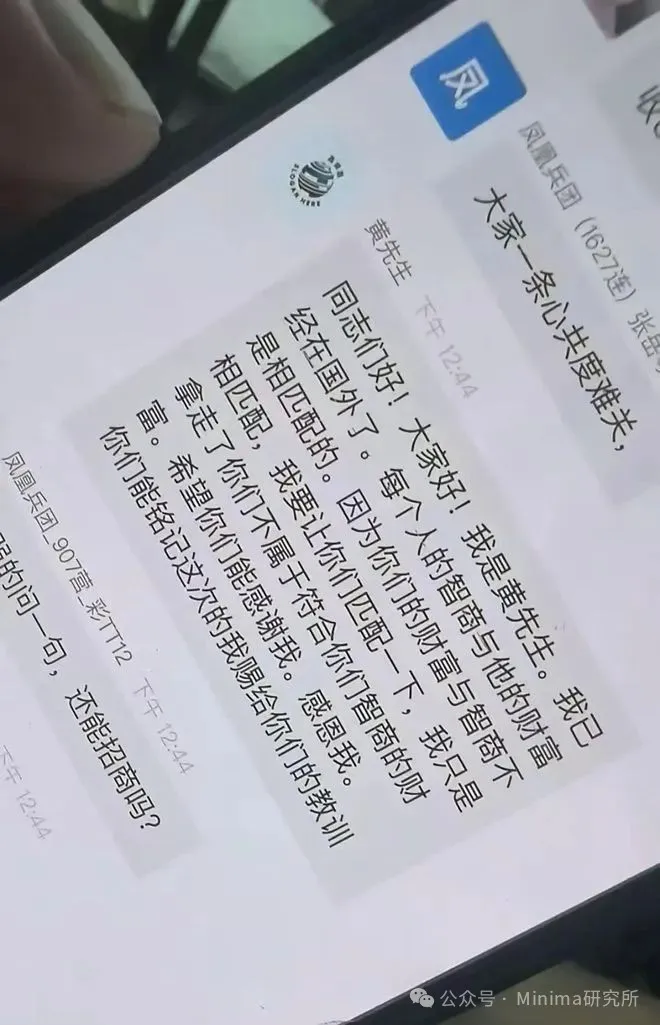 收
凤
凤凰兵团（1627连）张岳
大家一条心共度难关，
SLOGAN HERE
黄先生 下午 12:44
同志们好！大家好！我是黄先生。我已
经在国外了。每个人的智商与他的财富
是相匹配的。因为你们的财富与智商不
相匹配，我要让你们匹配一下，我只是
拿走了你们不属于符合你们智商的财
富。希望你们能感谢我。感恩我。
你们能铭记这次的我赐给你们的教训
凤凰兵团_907营_彩TT12 下午 12:44
的问一句，还能招商吗？
下午 12:44
公众号 · Minima研究所